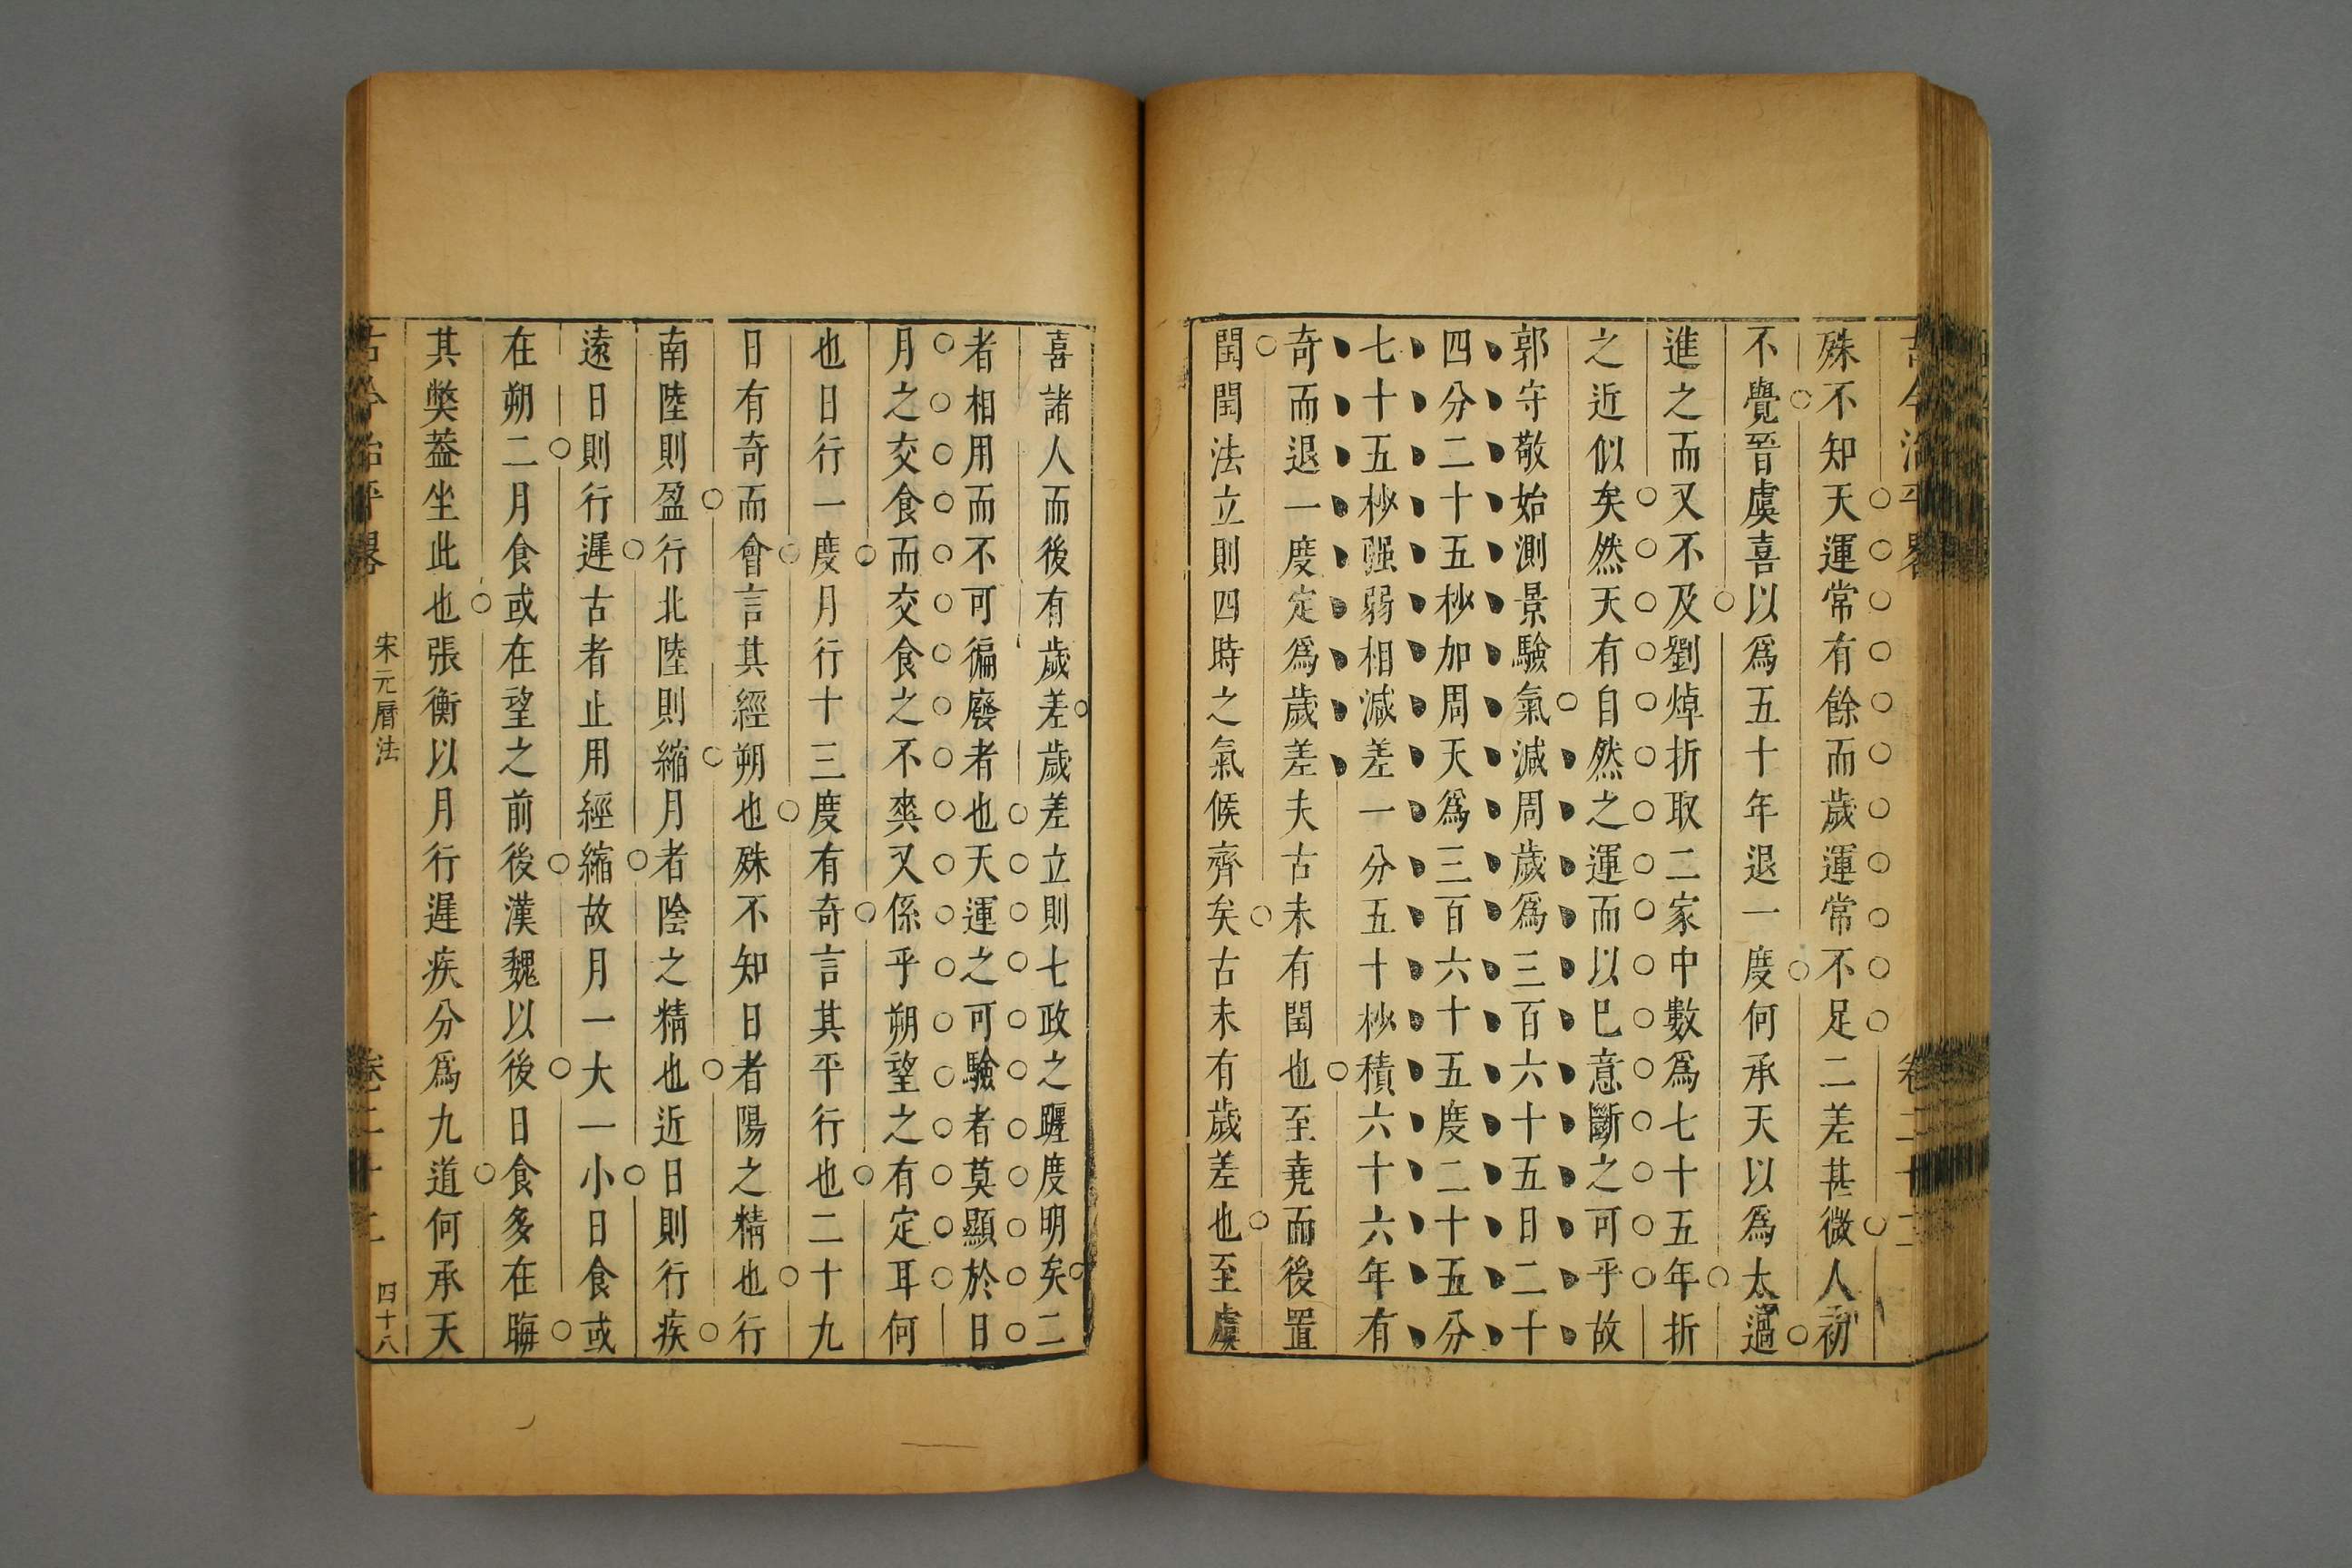 古今治平畧
卷二十二
殊不知天運常有餘而歲運常不足二差甚微人初
不覺晉虞喜以爲五十年退一度何承天以爲太過
進之而又不及劉焯折取二家中數爲七十五年折
之近似矣然天有自然之運而以巳意斷之可乎故
郭守敬始測景驗氣減周歲爲三百六十五日二十
四分二十五秒加周天爲三百六十五度二十五分
七十五秒强弱相減差一分五十秒積六十六年有
奇而退一度定爲歲差夫古未有閏也至堯而後置
閏閏法立則四時之氣候齊矣古未有歲差也至虞
喜諸人而後有歲差歲差立則七政之躔度明矣二
者相用而不可徧廢者也天運之可驗者莫顯於日
月之交食而交食之不爽又係乎朔望之有定耳何
也日行一度月行十三度有奇言其平行也二十九
日有奇而會言其經朔也殊不知日者陽之精也行
南陸則盈行北陸則縮月者陰之精也近日則行疾
遠日則行遲古者止用經縮故月一大一小日食或
在朔二月食或在望之前後漢魏以後日食多在晦
其獘葢坐此也張衡以月行遲疾分爲九道何承天
古今治平畧
宋元曆法
卷二十二
四十八